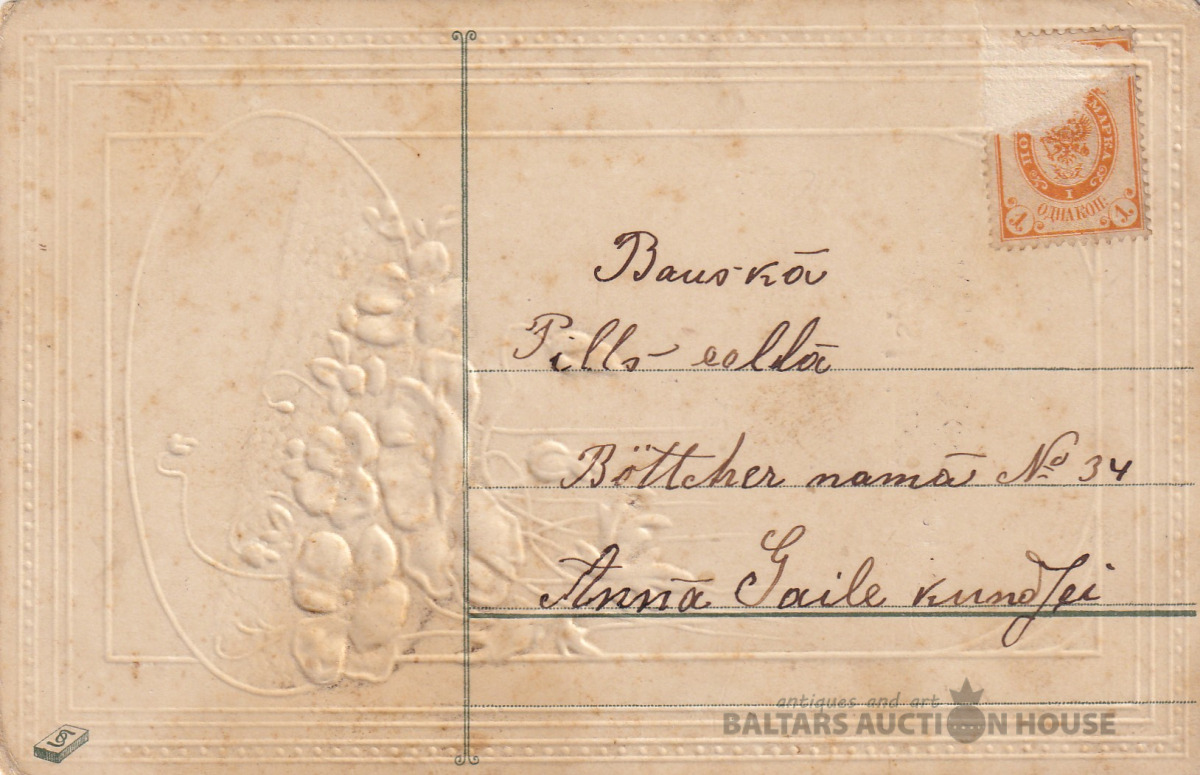 МАРКА
КОП
1
ОДНА КОП.
1. 1.
Bauskā
Pills eelkā
Böttcher namā № 34
Annā Gaile kundzei
antiques and art
BALTARS AUCTION HOUSE